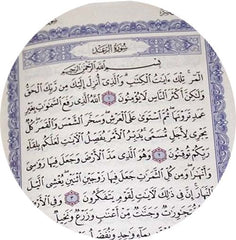 سُورَةُ الرَّعْدِ
بِسْمِ اللَّهِ الرَّحْمَٰنِ الرَّحِيمِ
الٓمٓر تِلْكَ ءَايَٰتُ الْكِتَٰبِ وَالَّذِىٓ أُنزِلَ إِلَيْكَ مِن رَّبِّكَ الْحَقُّ
وَلَٰكِنَّ أَكْثَرَ النَّاسِ لَا يُؤْمِنُونَ ١ اللَّهُ الَّذِى رَفَعَ السَّمَٰوَٰتِ بِغَيْرِ
عَمَدٍ تَرَوْنَهَا ثُمَّ اسْتَوَىٰ عَلَى الْعَرْشِ وَسَخَّرَ الشَّمْسَ وَالْقَمَرَ كُلٌّ
يَجْرِى لِأَجَلٍ مُّسَمًّى يُدَبِّرُ الْأَمْرَ يُفَصِّلُ الْءَايَٰتِ لَعَلَّكُم بِلِقَآءِ
رَبِّكُمْ تُوقِنُونَ ٢ وَهُوَ الَّذِى مَدَّ الْأَرْضَ وَجَعَلَ فِيهَا رَوَٰسِىَ
وَأَنْهَٰرًا وَمِن كُلِّ الثَّمَرَٰتِ جَعَلَ فِيهَا زَوْجَيْنِ اثْنَيْنِ يُغْشِى الَّيْلَ
النَّهَارَ إِنَّ فِى ذَٰلِكَ لَءَايَٰتٍ لِّقَوْمٍ يَتَفَكَّرُونَ ٣ وَفِى
مُّتَجَٰوِرَٰتٌ وَجَنَّٰتٌ مِّنْ أَعْنَٰبٍ وَزَرْعٌ وَنَخِيلٌ
بِمَآءٍ وَٰحِدٍ وَنُفَضِّلُ